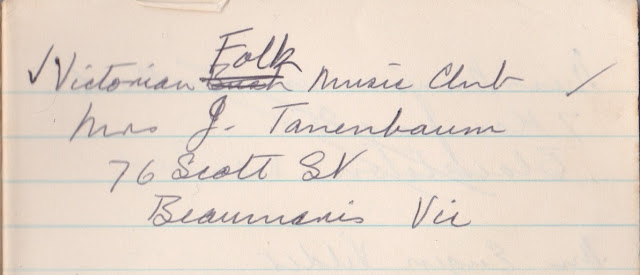 ✓ Victorian Folk Music Club /
Mrs J. Tanenbaum
76 Scott St
Beaumaris Vic